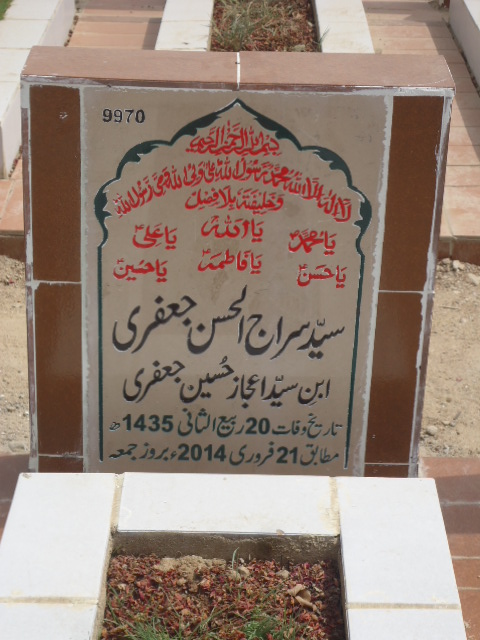 9970
بسم اللہ الرحمن الرحیم
لا الہ الا اللہ محمد رسول اللہ علی ولی اللہ وصی رسول اللہ
وخلیفتہ بلا فصل
یا اللہ
یا محمدؐ یا علیؑ
یا حسنؑ یا فاطمہؑ یا حسینؑ
سیّد سراج الحسن جعفری
ابن سیّد اعجاز حُسین جعفری
تاریخ وفات 20 ربیع الثانی 1435ھ
مطابق 21 فروری 2014ء بروز جمعہ